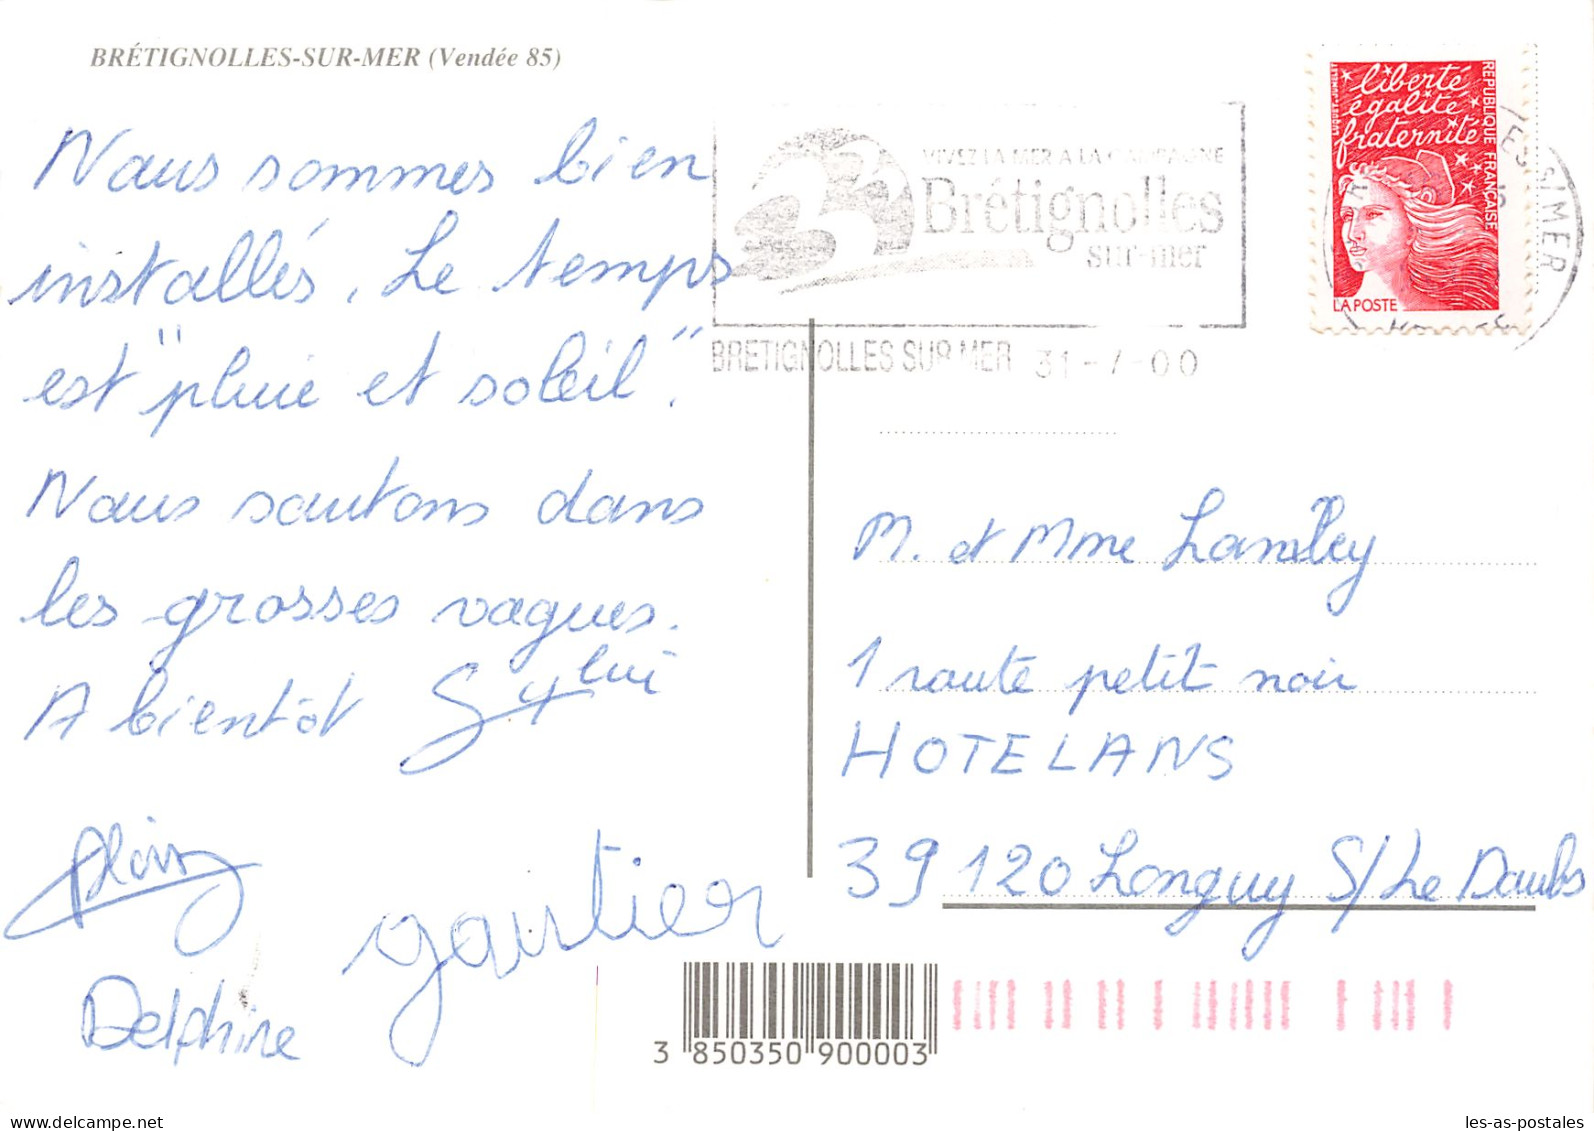 BRÉTIGNOLLES-SUR-MER (Vendée 85)
Nous sommes bien
installés. Le temps
est "pluie et soleil".
Nous sautons dans
les grosses vagues.
A bientôt Sylvi
Delphine
gautier
VIVEZ LA MER A LA CAMPAGNE
Brétignolles
sur-mer
BRETIGNOLLES SUR MER 31-7-00
liberté
égalité
fraternité
RÉPUBLIQUE FRANÇAISE
LA POSTE
M. et Mme
1 route petit noir
HOTELANS
39120 Longuy S/Le Doubs
3 850350 900003
les-as-postales